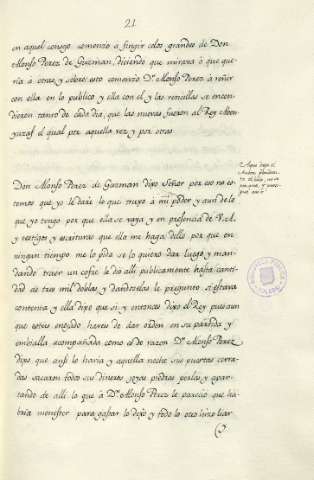 21
en aquel consejo comenzo a fingir celos grandes de Don
Alonso Perez de Guzman, diciendo que mirava ò que que-
ria à otras, y sobre esto comenzo Dn Alonso Perez à reñir
con ella en lo publico y ella con el y las rencillas se encen-
dieron tanto de cada dia, que las nuevas fueron al Rey Aben
yuzaf el qual por aquella vez y por otras
Don Alonso Perez de Guzman dijo Señor por eso no es-
temos que yo le daré lo que truxo à mi poder y aun de lo
que yo tengo por que ella se vaya, y en presencia de V. A.
y testigos y escrituras que ella me haga dello por que en
ningun tiempo me lo pida se lo quiero dar luego y man-
dando traer un cofre le dio alli publicamente hasta canti-
dad de tres mil doblas y dandoselas le pregunto si estava
contenta y ella dijo que si y entonces dijo el Rey pues aun
que estais enojado haveis de dar orden en su partida y
embialla acompañada como es de razon Dn Alonso Perez
dijo que ansi lo haria y aquella noche sus puertas cerra-
das sacaron todos sus dineros joyas piedras perlas y apar-
tando de alli lo que à Dn Alonso Perez le parecio que ha-
bria menester para gastar lo dejo y todo lo otro hizo liar
Aqui deja el